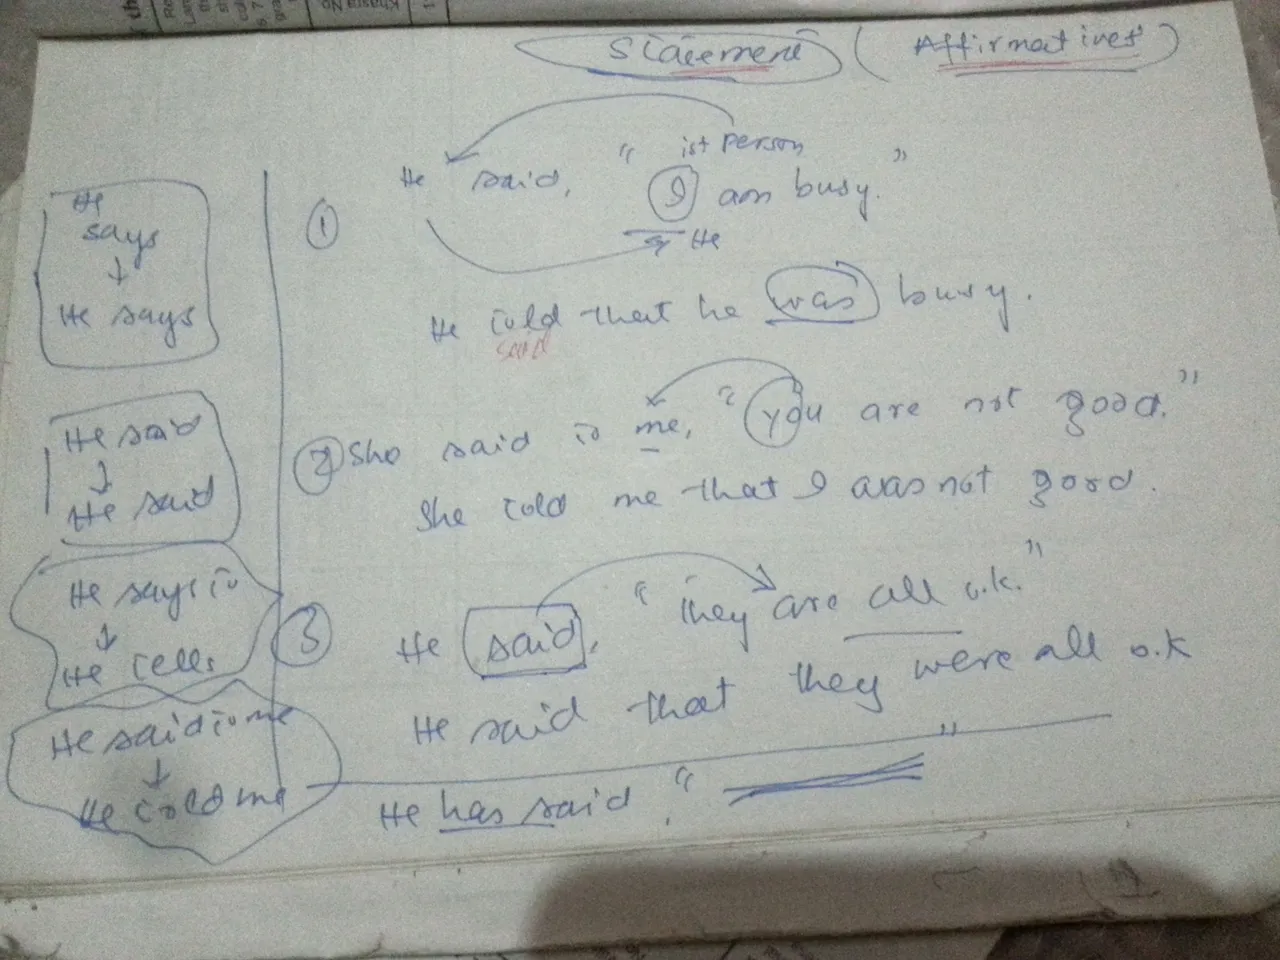 Statement (Affirmatives)
He
says
↓
He says
He said
↓
He said
He says to
↓
He tells
He said to me
↓
He told me
ist Person
① He said, "I am busy."
He
He told that he was busy.
said
② She said to me, "You are not good."
She told me that I was not good.
③ He said, "They are all o.k."
He said that they were all o.k
He has said, "